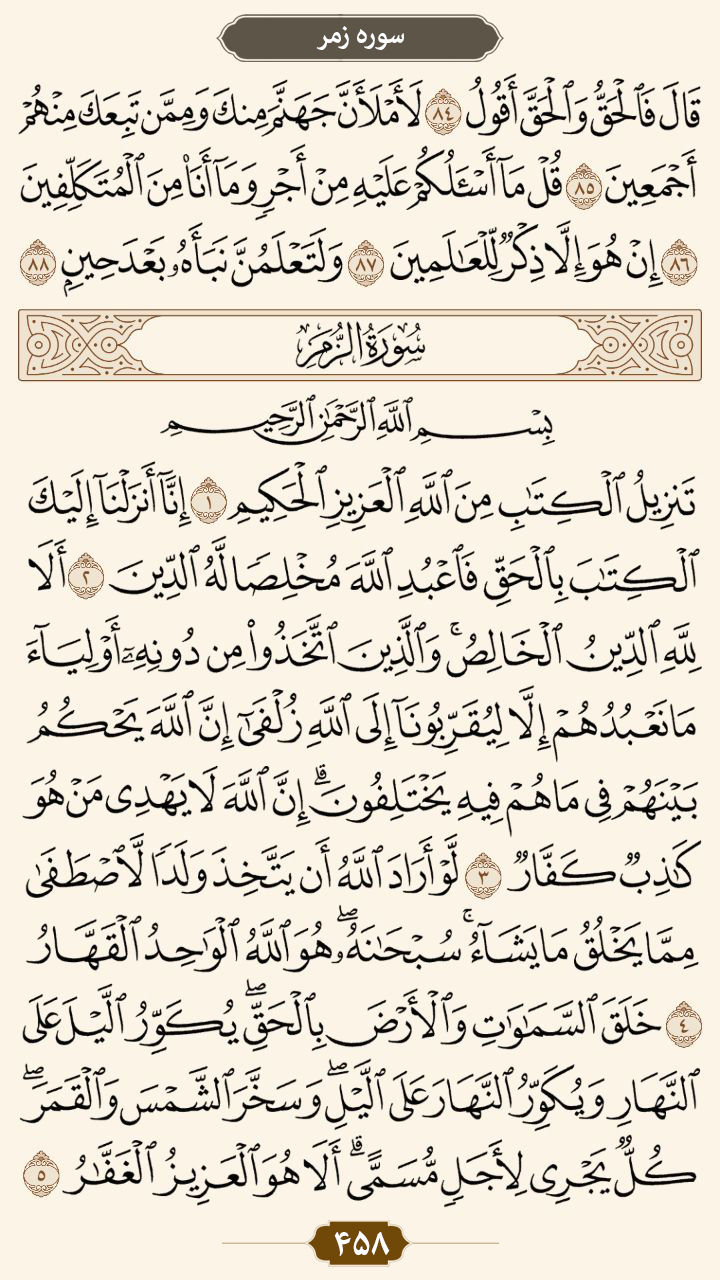 سوره زمر
قَالَ فَٱلْحَقُّ وَٱلْحَقَّ أَقُولُ ٨٤ لَأَمْلَأَنَّ جَهَنَّمَ مِنكَ وَمِمَّن تَبِعَكَ مِنْهُمْ
أَجْمَعِينَ ٨٥ قُلْ مَآ أَسْـَٔلُكُمْ عَلَيْهِ مِنْ أَجْرٍ وَمَآ أَنَا۠ مِنَ ٱلْمُتَكَلِّفِينَ
٨٦ إِنْ هُوَ إِلَّا ذِكْرٌ لِّلْعَـٰلَمِينَ ٨٧ وَلَتَعْلَمُنَّ نَبَأَهُۥ بَعْدَ حِينٍۭ ٨٨
سُورَةُ الزُّمَرِ
بِسْمِ ٱللَّهِ ٱلرَّحْمَـٰنِ ٱلرَّحِيمِ
تَنزِيلُ ٱلْكِتَـٰبِ مِنَ ٱللَّهِ ٱلْعَزِيزِ ٱلْحَكِيمِ ١ إِنَّآ أَنزَلْنَآ إِلَيْكَ
ٱلْكِتَـٰبَ بِٱلْحَقِّ فَٱعْبُدِ ٱللَّهَ مُخْلِصًا لَّهُ ٱلدِّينَ ٢ أَلَا
لِلَّهِ ٱلدِّينُ ٱلْخَالِصُ ۚ وَٱلَّذِينَ ٱتَّخَذُوا۟ مِن دُونِهِۦٓ أَوْلِيَآءَ
مَا نَعْبُدُهُمْ إِلَّا لِيُقَرِّبُونَآ إِلَى ٱللَّهِ زُلْفَىٰٓ إِنَّ ٱللَّهَ يَحْكُمُ
بَيْنَهُمْ فِى مَا هُمْ فِيهِ يَخْتَلِفُونَ ۗ إِنَّ ٱللَّهَ لَا يَهْدِى مَنْ هُوَ
كَـٰذِبٌ كَفَّارٌ ٣ لَّوْ أَرَادَ ٱللَّهُ أَن يَتَّخِذَ وَلَدًا لَّٱصْطَفَىٰ
مِمَّا يَخْلُقُ مَا يَشَآءُ ۚ سُبْحَـٰنَهُۥ ۖ هُوَ ٱللَّهُ ٱلْوَٰحِدُ ٱلْقَهَّارُ
٤ خَلَقَ ٱلسَّمَـٰوَٰتِ وَٱلْأَرْضَ بِٱلْحَقِّ ۖ يُكَوِّرُ ٱلَّيْلَ عَلَى
ٱلنَّهَارِ وَيُكَوِّرُ ٱلنَّهَارَ عَلَى ٱلَّيْلِ ۖ وَسَخَّرَ ٱلشَّمْسَ وَٱلْقَمَرَ ۖ
كُلٌّ يَجْرِى لِأَجَلٍ مُّسَمًّى ۗ أَلَا هُوَ ٱلْعَزِيزُ ٱلْغَفَّـٰرُ ٥
۴۵۸